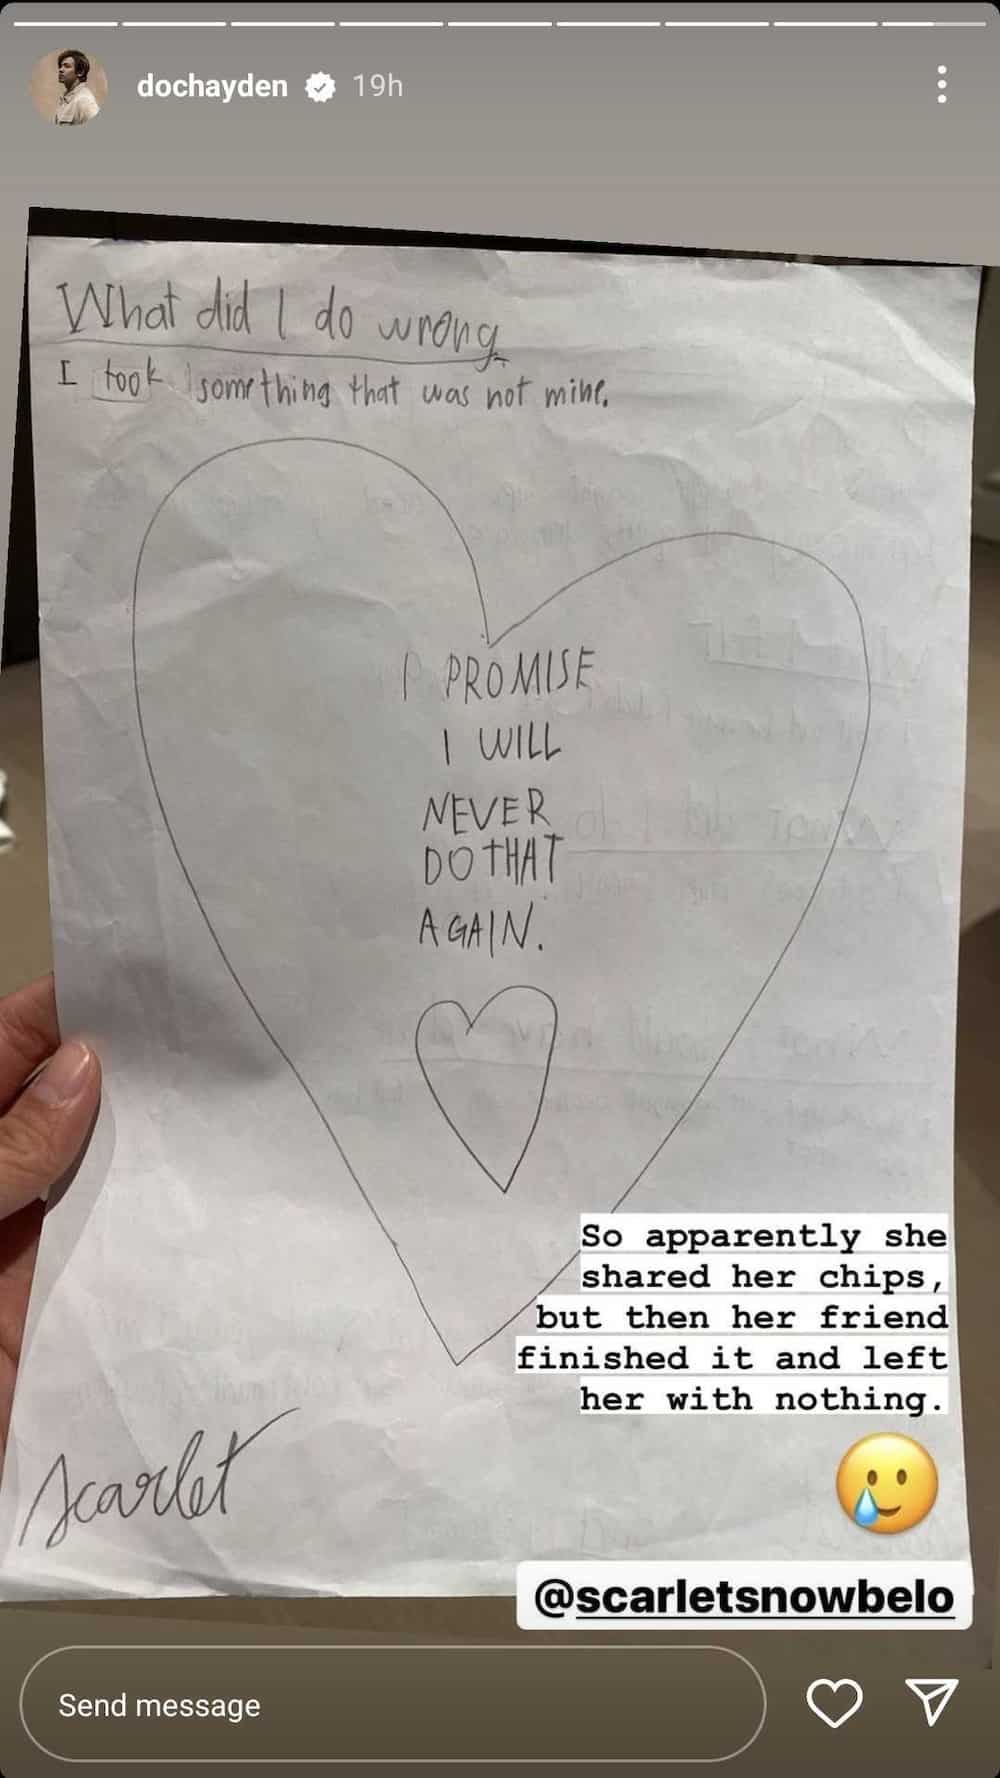 dochayden 19h
What did I do wrong
I took something that was not mine.
I PROMISE
I WILL
NEVER
DO THAT
AGAIN.
So apparently she
shared her chips,
but then her friend
finished it and left
her with nothing.
Scarlet
@scarletsnowbelo
Send message